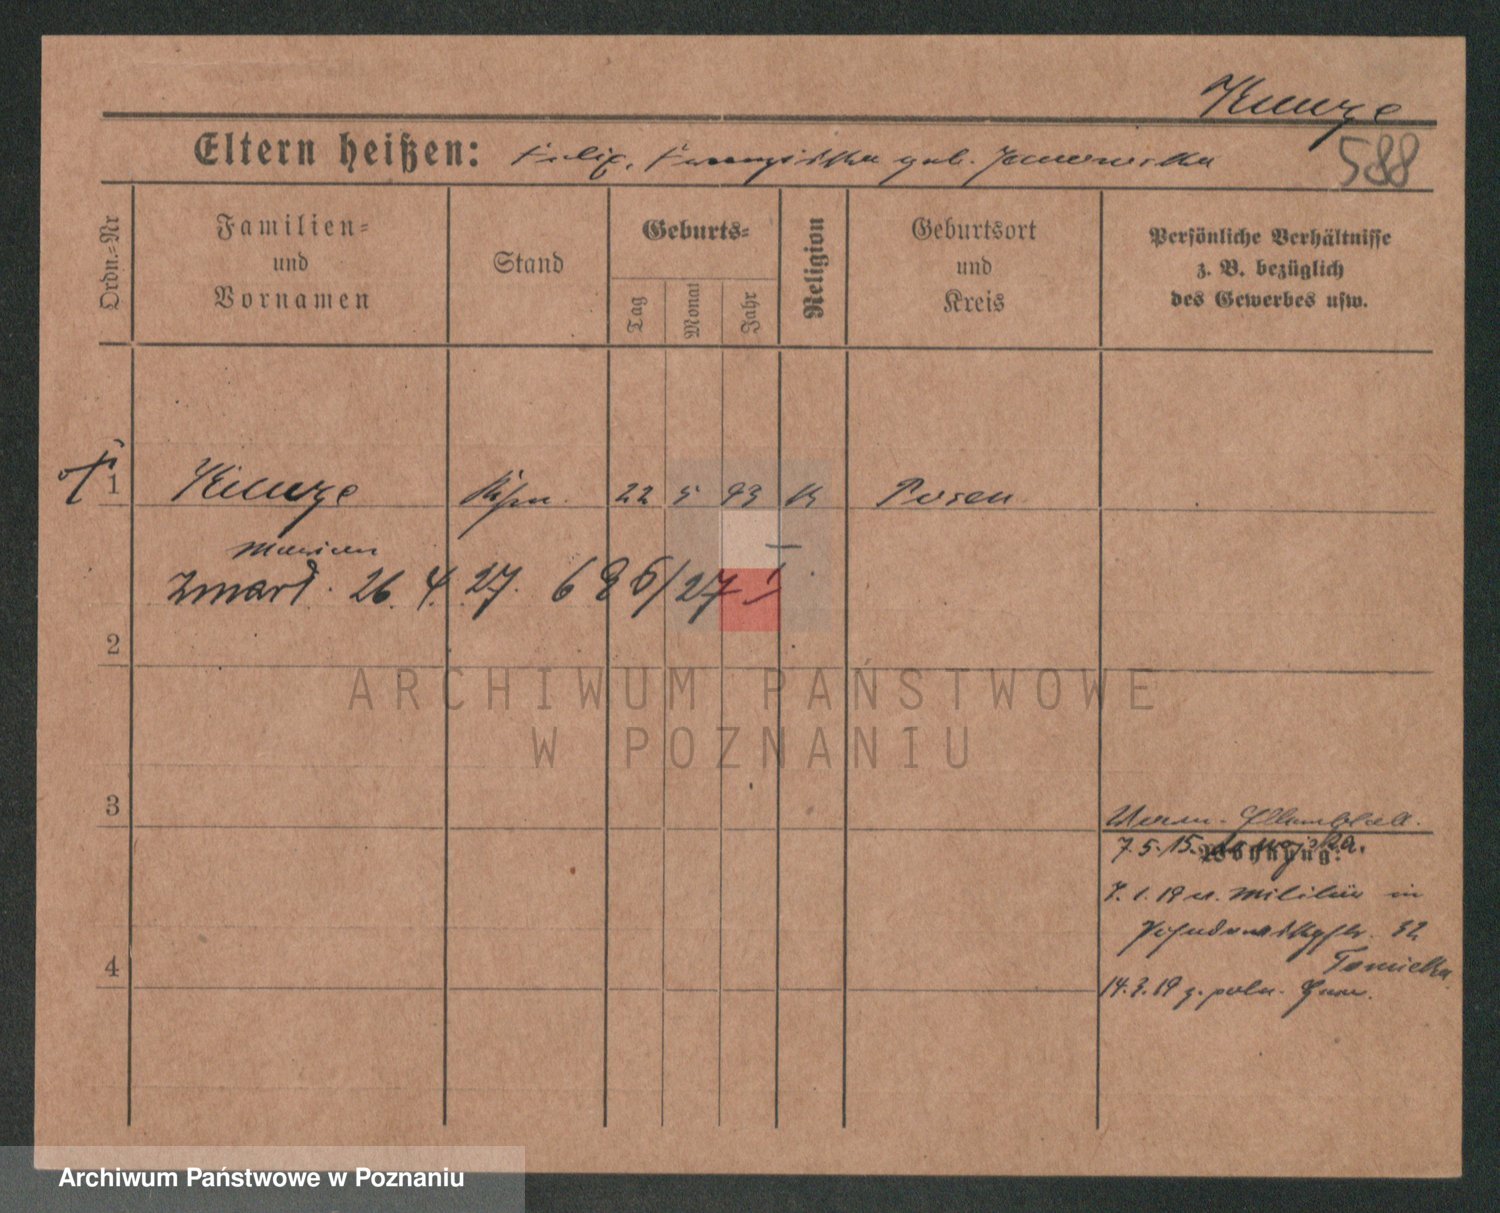 Kunze
Eltern heißen: Felix, Franziska geb. Janowska
588
Ordn.=Nr
Familien=
und
Vornamen
Stand
Geburts=
Tag
Monat
Jahr
Religion
Geburtsort
und
Kreis
Persönliche Verhältnisse
z. B. bezüglich
des Gewerbes usw.
1 Kunze 22 5 93 K Posen
Marian
zmarł. 26. 4. 27. 686/27
2
3
7.5.15.
Wohnung:
7.1.19 v. Militär in
32
4
14.2.19 z. poln.
ARCHIWUM PAŃSTWOWE
W POZNANIU
Archiwum Państwowe w Poznaniu